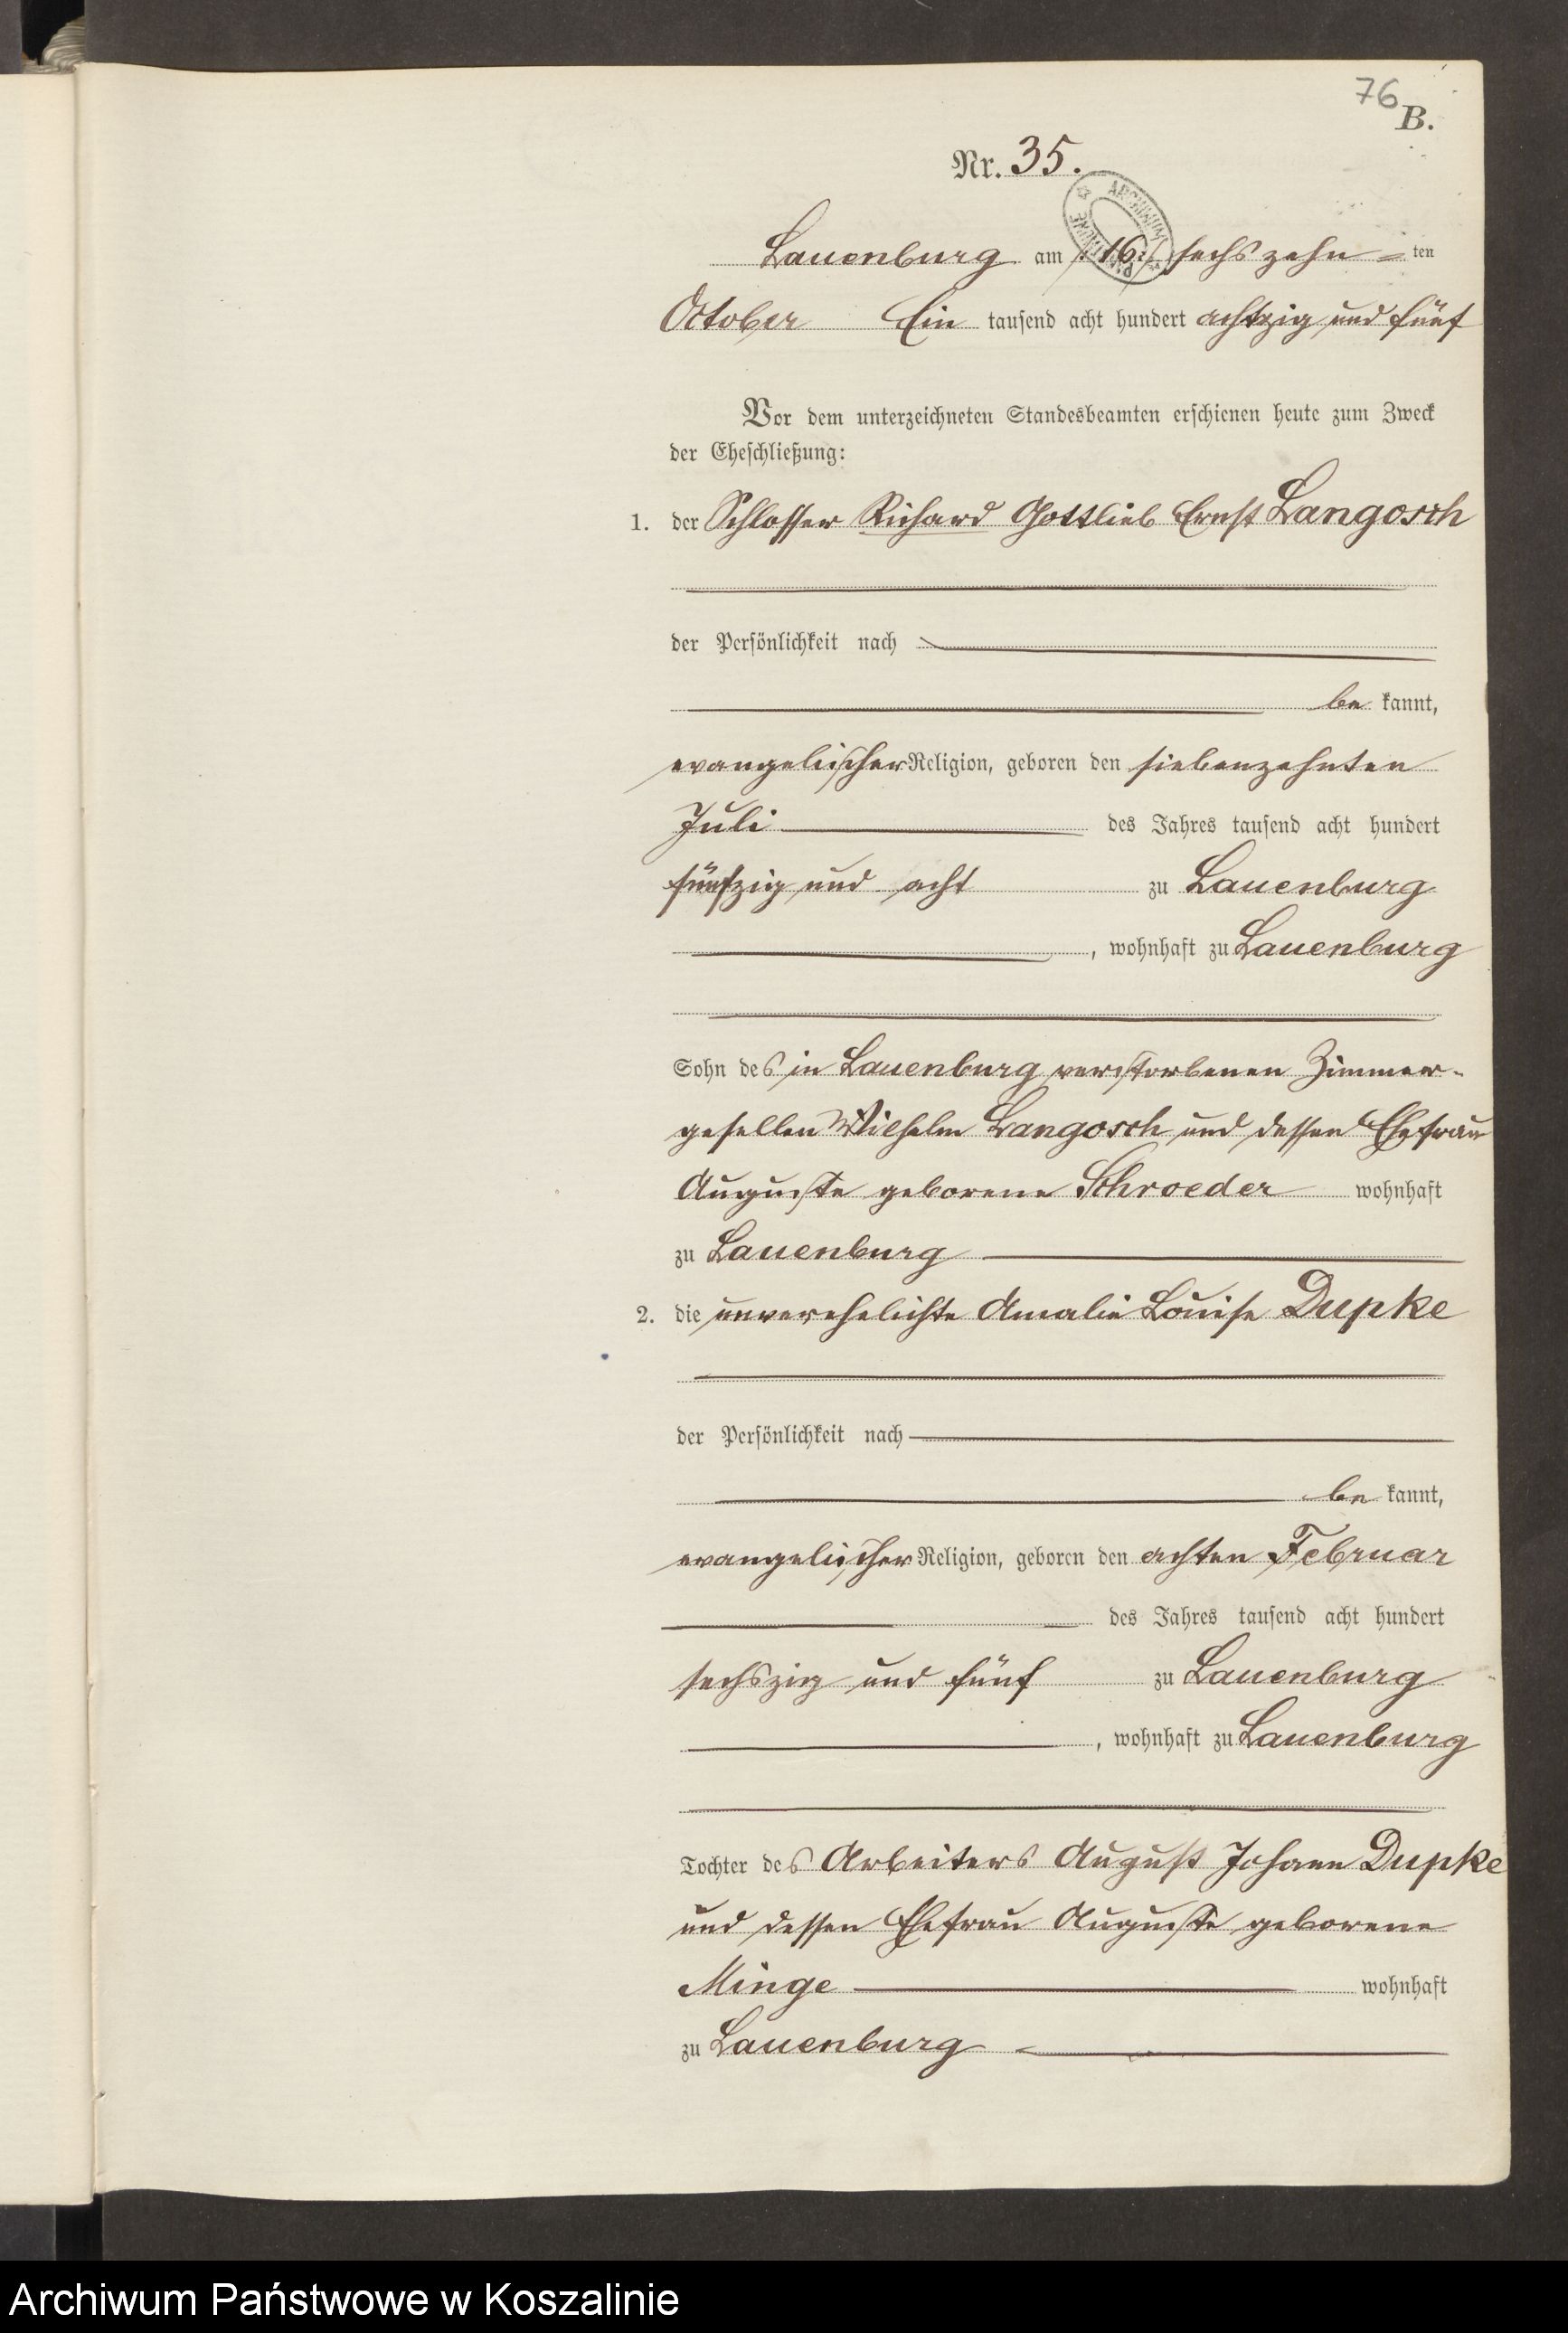 76
B.
Nr. 35.
Lauenburg am /:16:/ sechszehn ten
October Ein tausend acht hundert achtzig und fünf
Vor dem unterzeichneten Standesbeamten erschienen heute zum Zweck
der Eheschließung:
1. der Schlosser Richard Gottlieb Ernst Langosch
der Persönlichkeit nach
be kannt,
evangelischer Religion, geboren den siebenzehnten
Juli des Jahres tausend acht hundert
fünfzig und acht zu Lauenburg
, wohnhaft zu Lauenburg
Sohn des in Lauenburg verstorbenen Zimmer-
gesellen Wilhelm Langosch und dessen Ehefrau
Auguste geborene Schroeder wohnhaft
zu Lauenburg
2. die unverehelichte Amalie Louise Dupke
der Persönlichkeit nach
be kannt,
evangelischer Religion, geboren den achten Februar
des Jahres tausend acht hundert
sechszig und fünf zu Lauenburg
, wohnhaft zu Lauenburg
Tochter des Arbeiters August Johann Dupke
und dessen Ehefrau Auguste geborene
Minge wohnhaft
zu Lauenburg
Archiwum Państwowe w Koszalinie